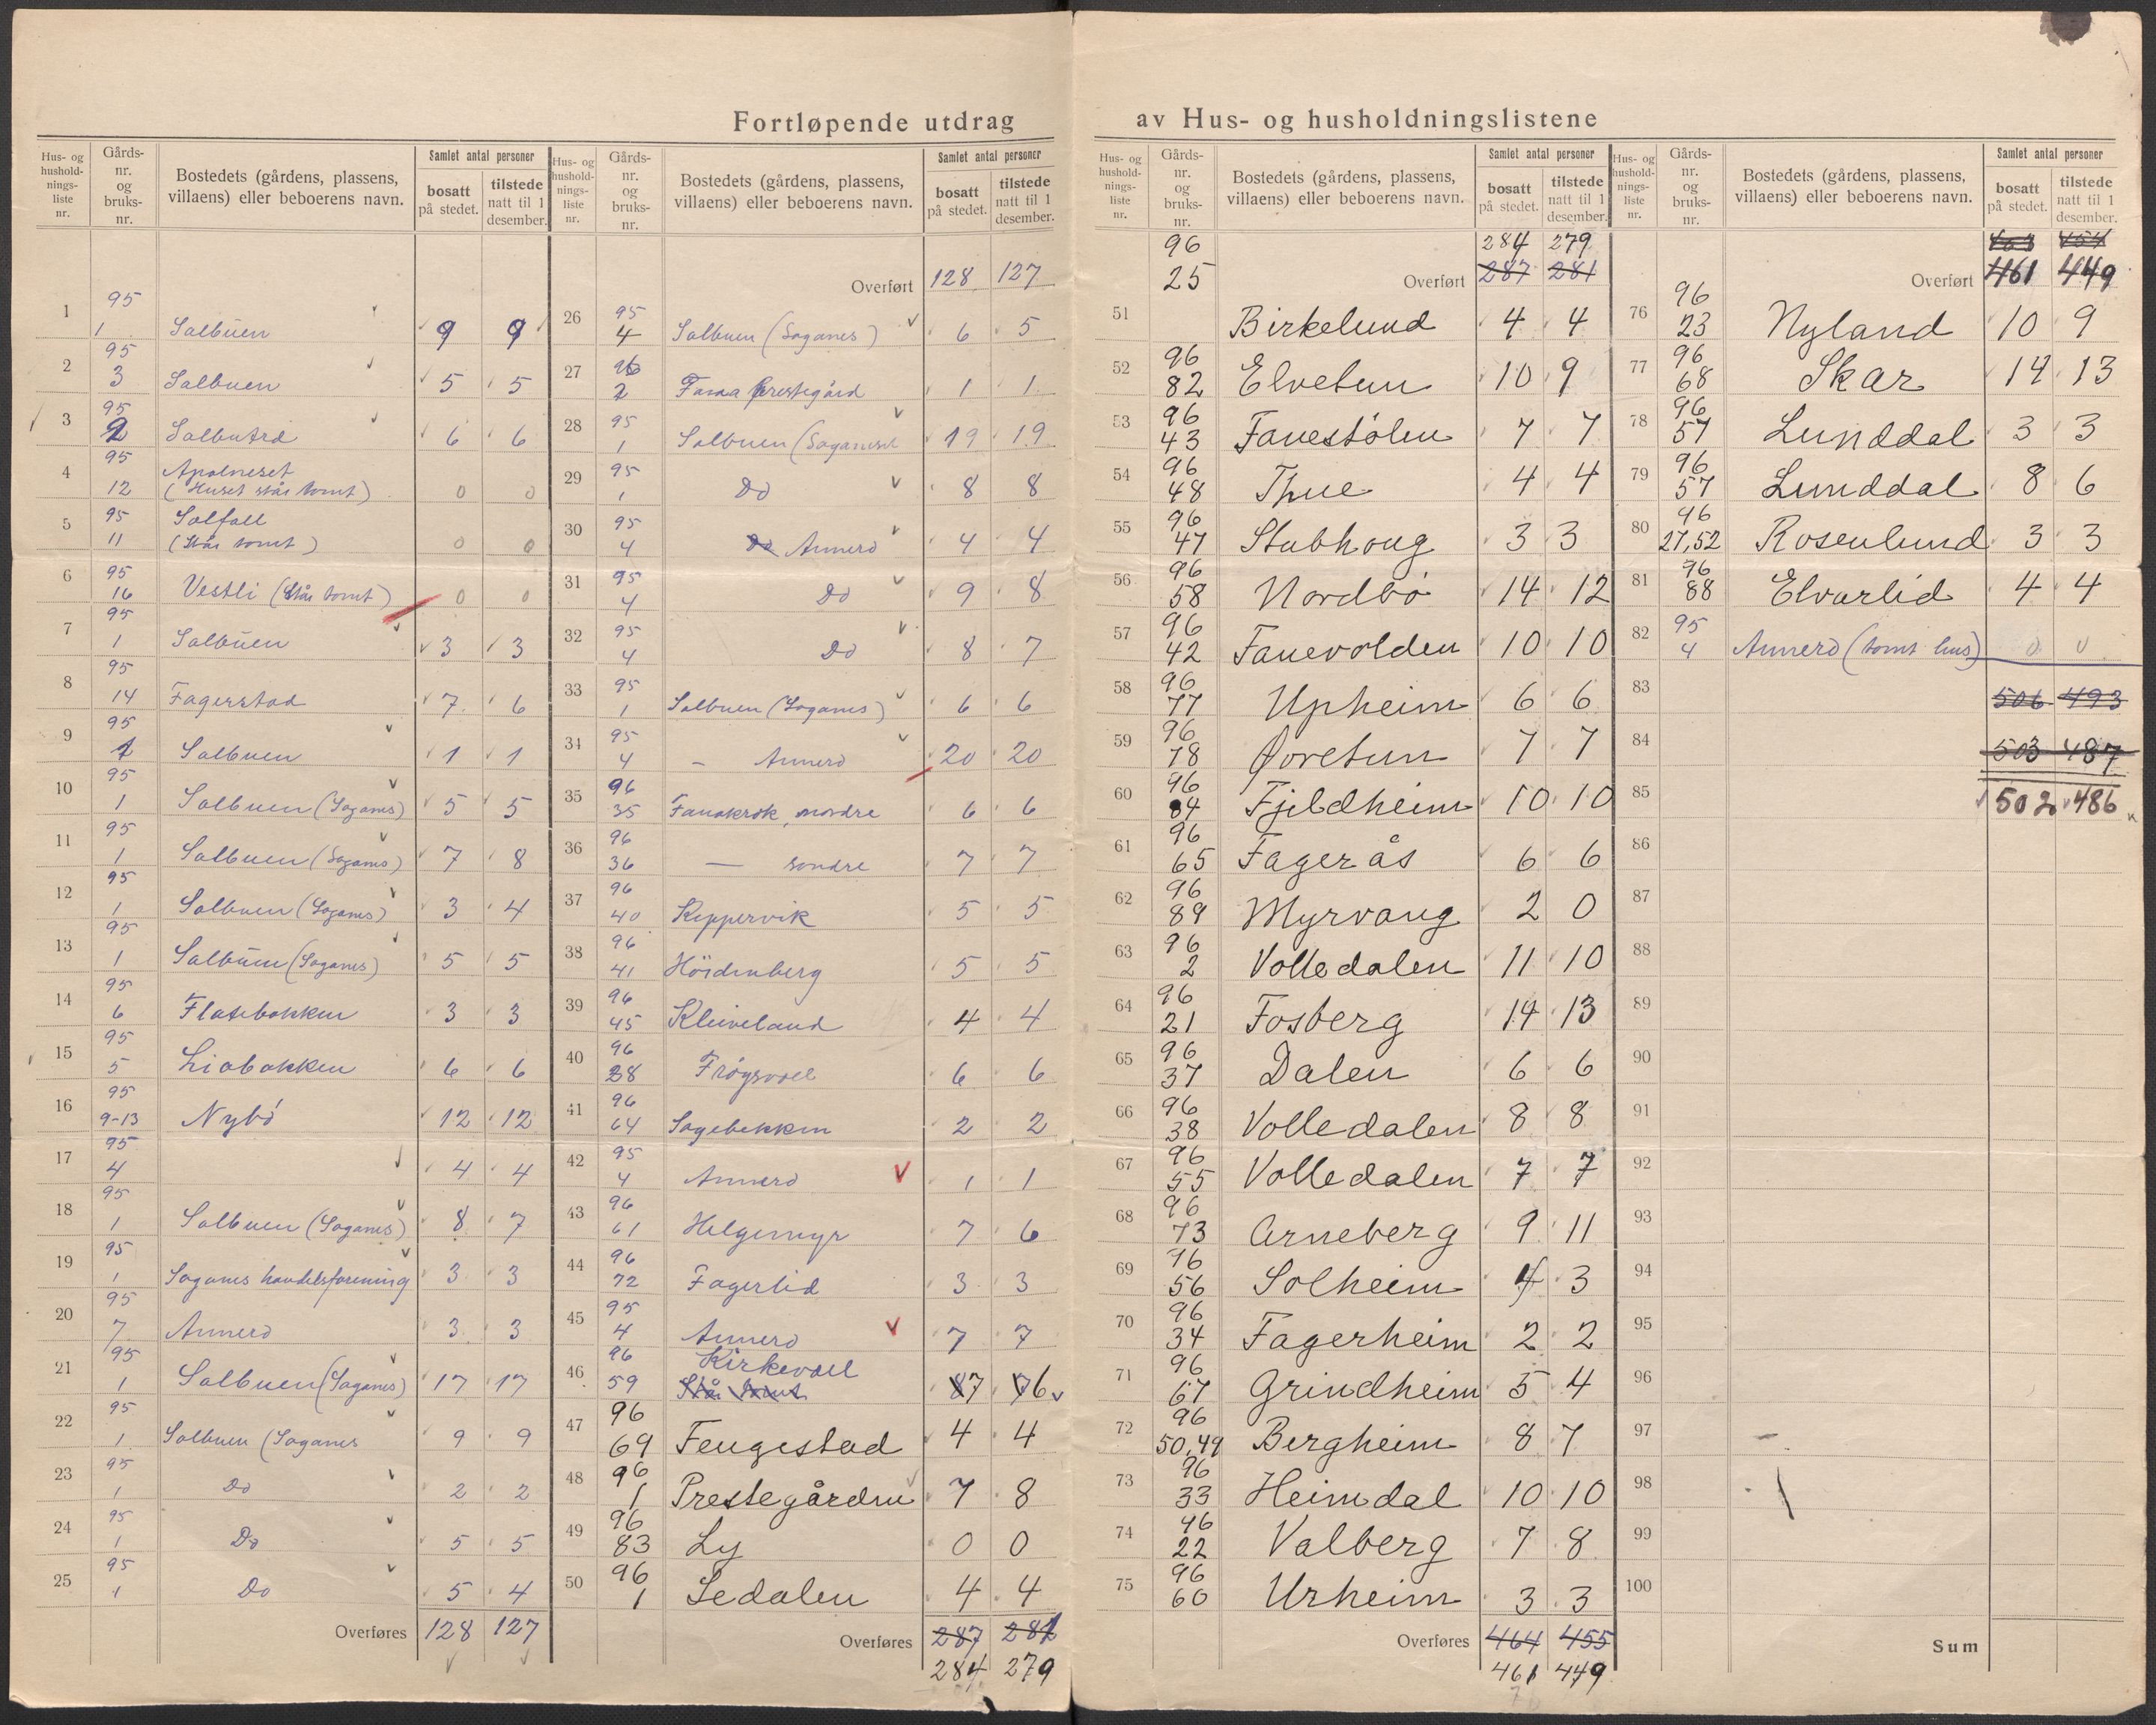 Fortløpende utdrag av Hus- og husholdningslistene
Hus- og hushold-nings-liste nr. Gårds-nr. og bruks-nr. Bostedets (gårdens, plassens, villaens) eller beboerens navn. Samlet antal personer bosatt på stedet. tilstede natt til 1 desember.
1 95 1 Salbuen 9 9
2 95 3 Salbuen 5 5
3 95 2 Salbuter 6 6
4 95 12 Apalneset (Huset står tomt) 0 0
5 95 11 Solfall (Står tomt) 0 0
6 95 16 Vestli (Står tomt) 0 0
7 95 1 Salbuen 3 3
8 95 14 Fagerstad 7 6
9 95 1 Salbuen 1 1
10 95 1 Salbuen (Soganes) 5 5
11 95 1 Salbuen (Soganes) 7 8
12 95 1 Salbuen (Soganes) 3 4
13 95 1 Salbuen (Soganes) 5 5
14 95 6 Flatebakken 3 3
15 95 5 Liabakken 6 6
16 95 9-13 Nybö 12 12
17 95 4 4 4
18 95 1 Salbuen (Soganes) 8 7
19 95 1 Soganes handelsforening 3 3
20 95 7 Annerö 3 3
21 95 1 Salbuen (Soganes) 17 17
22 95 1 Salbuen (Soganes 9 9
23 95 1 Do 2 2
24 95 1 Do 5 5
25 95 1 Do 5 4
Overføres 128 127
Hus- og hushold-nings-liste nr. Gårds-nr. og bruks-nr. Bostedets (gårdens, plassens, villaens) eller beboerens navn. Samlet antal personer bosatt på stedet. tilstede natt til 1 desember.
Overført 128 127
26 95 4 Salbuen (Soganes) 6 5
27 96 2 Fanaa prestegård 1 1
28 95 1 Salbuen (Soganeset 19 19
29 95 1 Do 8 8
30 95 4 Do Annerö 4 4
31 95 4 Do 9 8
32 95 4 Do 8 7
33 95 1 Salbuen (Soganes) 6 6
34 95 4 - Annerö 20 20
35 96 35 Fanakrok, nordre 6 6
36 96 36 — søndre 7 7
37 96 40 Keppervik 5 5
38 96 41 Hördenberg 5 5
39 96 45 Kleiveland 4 4
40 96 28 Frøysvoll 6 6
41 96 64 Sagebekken 2 2
42 95 4 Annerö 1 1
43 96 61 Helgemyr 7 6
44 96 72 Fagerlid 3 3
45 95 4 Annerö 7 7
46 96 59 Kirkevoll
Står tomt 87 76
47 96 69 Fengestad 4 4
48 96 1 Prestegården 7 8
49 96 83 Ly 0 0
50 96 1 Sedalen 4 4
Overføres 287 281
284 279
Hus- og hushold-nings-liste nr. Gårds-nr. og bruks-nr. Bostedets (gårdens, plassens, villaens) eller beboerens navn. Samlet antal personer bosatt på stedet. tilstede natt til 1 desember.
284 279
Overført 287 281
51 96 25 Birkelund 4 4
52 96 82 Elvetun 10 9
53 96 43 Fanestölen 7 7
54 96 48 Thue 4 4
55 96 47 Stubhoug 3 3
56 96 58 Nordbö 14 12
57 96 42 Fanevolden 10 10
58 96 77 Upheim 6 6
59 96 78 Øvretun 7 7
60 96 84 Fjeldheim 10 10
61 96 65 Fagerås 6 6
62 96 89 Myrvang 2 0
63 96 2 Volledalen 11 10
64 96 21 Fosberg 14 13
65 96 37 Dalen 6 6
66 96 38 Volledalen 8 8
67 96 55 Volledalen 7 7
68 96 73 Arneberg 9 11
69 96 56 Solheim 4 3
70 96 34 Fagerheim 2 2
71 96 67 Grindheim 5 4
72 96 50,49 Bergheim 8 7
73 96 33 Heimdal 10 10
74 96 22 Valberg 7 8
75 96 60 Urheim 3 3
Overføres 464 455
461 449
Hus- og hushold-nings-liste nr. Gårds-nr. og bruks-nr. Bostedets (gårdens, plassens, villaens) eller beboerens navn. Samlet antal personer bosatt på stedet. tilstede natt til 1 desember.
Overført 461 449
76 96 23 Nyland 10 9
77 96 68 Skar 14 13
78 96 57 Lunddal 3 3
79 96 57 Lunddal 8 6
80 96 27,52 Rosenlund 3 3
81 96 88 Elvarlid 4 4
82 95 4 Annerö (tomt hus) 0 0
83 506 493
84 503 487
85 502 486
86
87
88
89
90
91
92
93
94
95
96
97
98
99
100
Sum